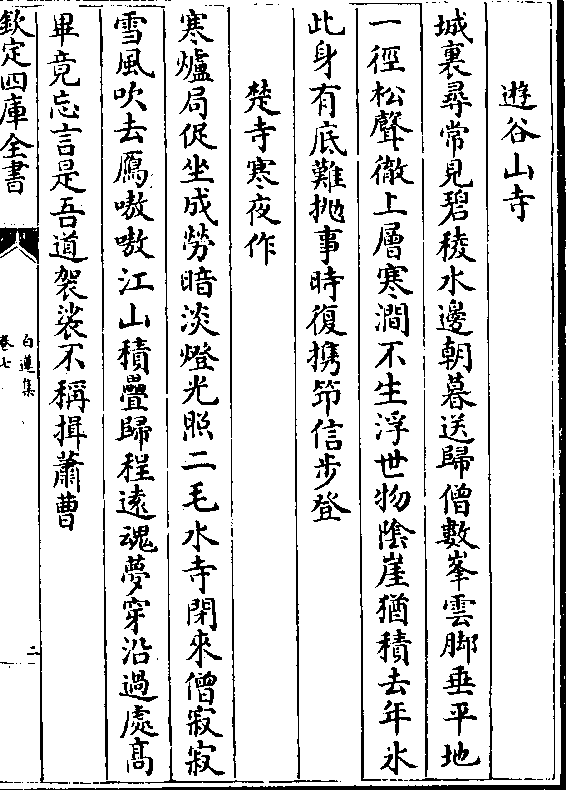 遊谷山寺
城裏尋常見碧稜水邊朝暮送歸僧數峯雲脚垂平地
一徑松聲徹上層寒澗不生浮世物陰崖猶積去年氷
此身有底難抛事時復携笻信步登
楚寺寒夜作
寒爐局促坐成勞暗淡燈光照二毛水寺閉來僧寂寂
雪風吹去鴈嗷嗷江山積疊歸程遠魂夢穿沿過處髙
畢竟忘言是吾道袈裟不稱揖蕭曹
欽定四庫全書
白蓮集
卷七
二